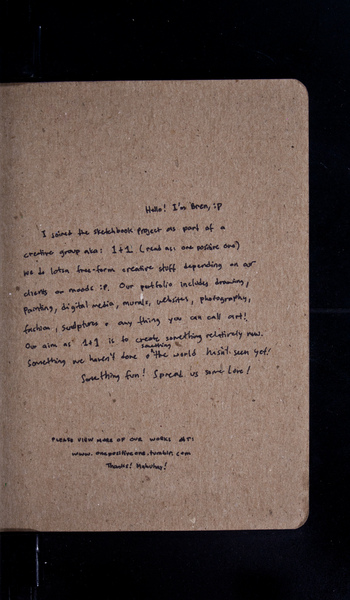 Hello! I'm Bren, :p
I joined the Sketchbook Project as part of a
creative group aka: 1+1 (read as: one positive one)
We do lotsa free-form creative stuff depending on our
clients or moods :p. Our portfolio includes drawing,
painting, digital media, murals, websites, photography,
fashion, sculptures & any thing you can call art!
Our aim as 1+1 is to create something relatively new.
Something we haven't done & something the world hasn't seen yet!
Something fun! Spread us some love!
PLEASE VIEW MORE OF OUR WORKS AT:
www.onepositiveone.tumblr.com
Thanks!